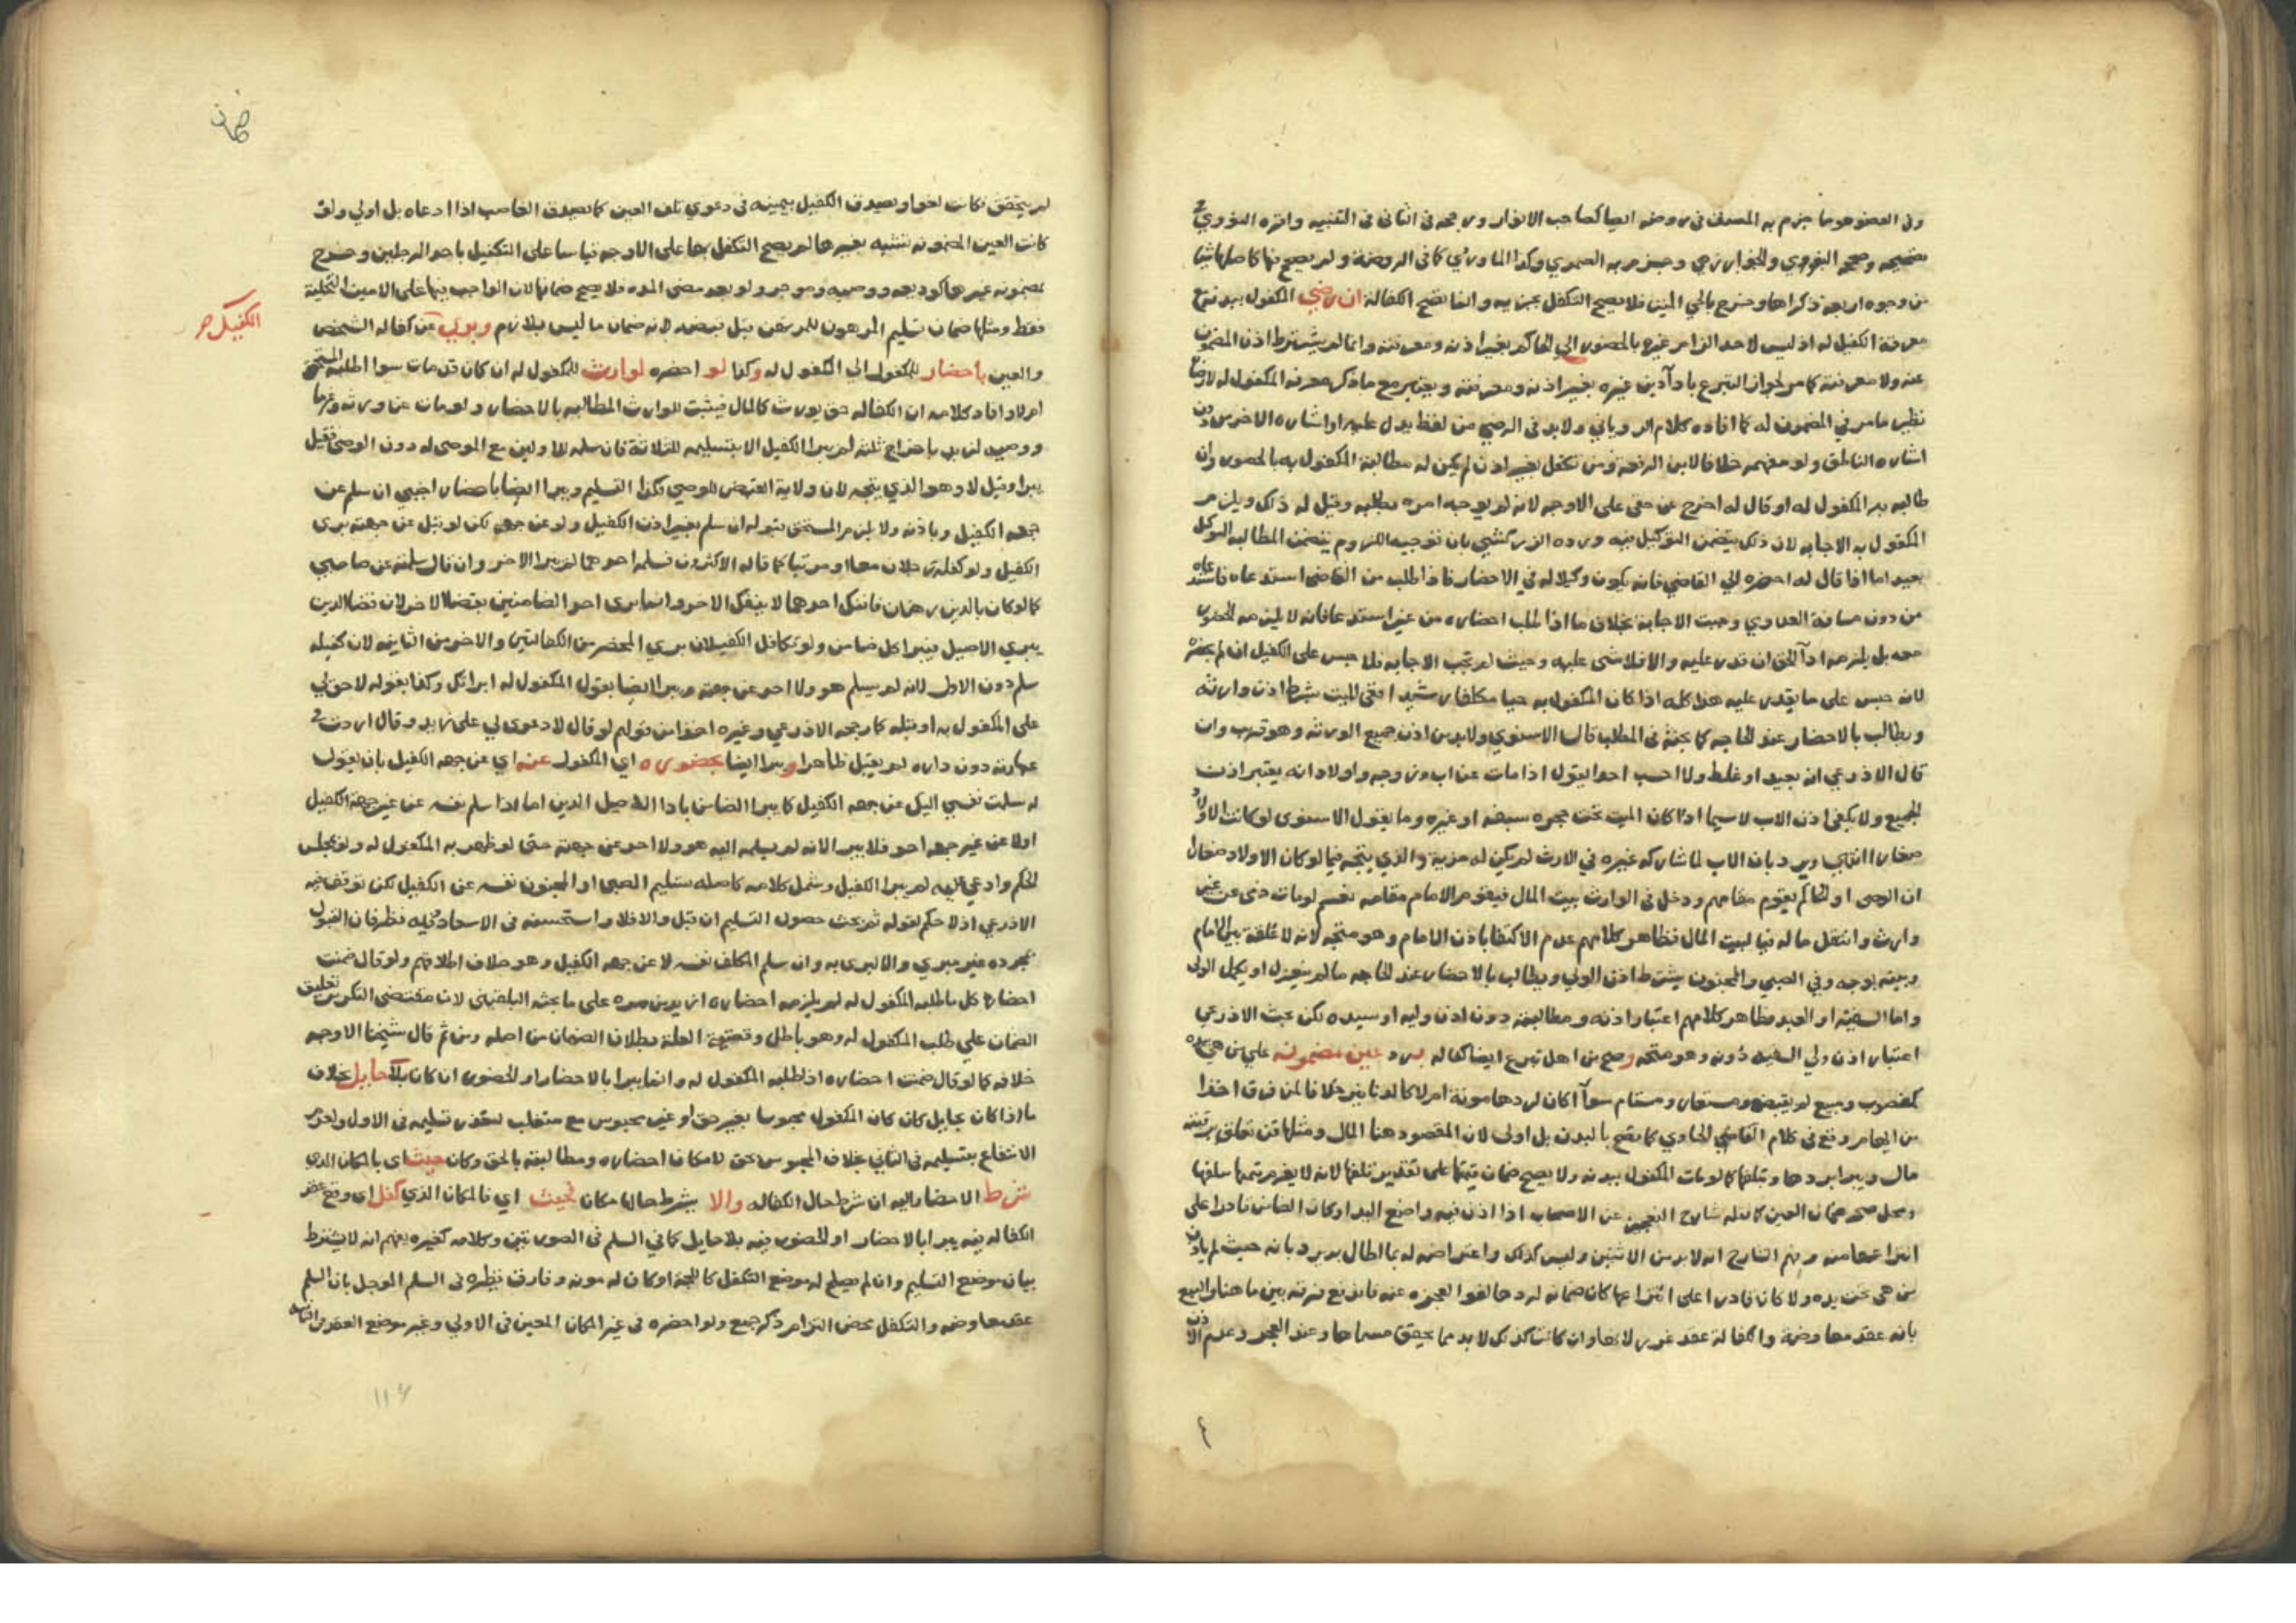 وفي العضو هو ما جزم به المصنف في روضه ايضا كصاحب الانوار ورجحه في الثاني في التنبيه واقره النووي في
تصحيحه وصححه البغوي والخوارزمي وجزم به الصيمري وكذا الماوردي كما في الروضة ولم يصحح فيها كاصلها شيا
من وجوه اربعة ذكراها وخرج بالحي الميت فلا يصح التكفل بجزيه وانما تصح الكفالة ان رضي المكفول ببدنه مع
معرفة الكفيل له اذ ليس لاحد الزام غيره بالحضور الي الحاكم بغير اذنه ومعرفته وانما لم يشترط اذن المضمون
عنه ولا معرفته كما مر لجواز التبرع باداء دين غيره بغير اذنه ومعرفته ويعتبر مع ما ذكر معرفة المكفول له لا رضاه
نظير ما مر في المضمون له كما افاده كلام الروياني ولا بد في الرضي من لفظ يدل عليه او اشاره الاخرس دون
اشاره الناطق ولو مفهمه خلافا لابن الرفعه ومن تكفل بغير اذن لم يكن له مطالبة المكفول به بالحضور وان
طالبه به المكفول له او قال له اخرج عن حقي على الاوجه لانه لم يوجبه امره بطلبه وقيل له ذلك ويلزم
المكفول به الاجابه لان ذلك يتضمن التوكيل فيه ورده الزركشي بان توجيه اللزوم بتضمن المطالبه التوكيل
بعيد اما اذا قال له احضره الي القاضي فانه يكون وكيلا له في الاحضار فاذا طلب من القاضي استدعاه فاستدعاه
من دون مسافة العدوي وجبت الاجابة بخلاف ما اذا طلب احضاره من غير استدعا فانه لا يلزمه الحضور
معه بل يلزمه اداء الحق ان قدر عليه والا فلا شى عليه وحيث لم تجب الاجابه فلا حبس على الكفيل ان لم يحضره
لانه حبس على ما لا يقدر عليه هذا كله اذا كان المكفول به حيا مكلفا رشيدا ففي الميت يشترط اذن وارثه
ويطالب بالاحضار عند الحاجه كما بحثه في المطلب قال الاسنوي ولا بد من اذن جميع الورثه وهو قريب وان
قال الاذرعي انه بعيد او غلط ولا احسب احدا يقول اذا مات عن اب وزوجه واولاد انه يعتبر اذن
الجميع ولا يكفي اذن الاب لا سيما اذا كان الميت تحت حجره سفه او غيره وما يقول الاسنوي لو كانت الاولاد
صغارا انتهي ويرد بان الاب لما شاركه غيره في الارث لم يكن له مزية والذي يتجه فيما لو كان الاولاد صغارا
ان الوصي او الحاكم يقوم مقامهم ودخل في الوارث بيت المال فيقوم الامام مقامه نعم لو مات ذمي عن غير
وارث وانتقل ماله فيا لبيت المال فظاهر كلامهم عدم الاكتفا باذن الامام وهو متجه لانه لا علقة بين الامام
وبينه بوجه وفي الصبي والمجنون يشترط اذن الولي ويطالب بالاحضار عند الحاجه ما لم ينعزل او يكمل المولى
واما السفيه او العبد فظاهر كلامهم اعتبار اذنه ومطالبته دون اذن وليه او سيده لكن بحث الاذرعي
اعتبار اذن ولي السفيه دونه وهو متجه وصح من اهل تبرع ايضا كفاله برد عين مضمونه علي من هي بيده
كمغصوب ومبيع لم يقبض ومستعار ومستام سوا اكان لردها مونة ام لا كما لو تا بيز خلافا لمن فرق اخذا
من ايهام وقع في كلام القاضي الحاوي كما تصح بالبدن بل اولى لان المقصود هنا المال ومثلها قن تعلق برقبته
مال ويبرا بردها وبتلفها كما لو مات المكفول ببدنه ولا يصح ضمان قيمتها على تقدير تلفها لانه لا يغرم قيمتها بتلفها
ومحل صحه ضمان العين كما نقله شارح التعجيز عن الاصحاب اذا اذن فيه واضع اليد او كان الضامن قادرا على
انتزاعها منه وفهم الشارح انه لا بد من الاثنين وليس كذلك واعتراضه له بما اطال به يرد بانه حيث لم ياذن
من هي تحت يده ولا كان قادرا على انتزاعها كان ضمانه لردها لغوا لعجزه عنه فاندفع فرقه بين ما هنا والبيع
بانه عقد معاوضة والكفالة عقد غرر لانها وان كانت كذلك لا بد مما يحقق مسماها وعند العجز وعدم الاذن
ضمان
لم يتحقق فكانت لغوا ويصدق الكفيل بيمينه في دعوي تلف العين كما يصدق الغاصب اذا ادعاه بل اولي ولو
كانت العين المضمونه تشتبه بغيرها لم يصح التكفل بها على الاوجه قياسا على التكفيل باحد الرجلين وخرج
بمضمونه غيرها كوديعه ووصيه وموجر ولو بعد مضى المده فلا يصح ضمانها لان الواجب فيها على الامين التخلية
فقط ومثلها ضمان تسليم المرهون للمرتهن قبل قبضه لانه ضمان ما ليس بلازم وبري عن كفاله الشخص
الكفيل حر
والعين باحضار المكفول الي المكفول له وكذا لو احضره لوارث المكفول له ان كان قد مات سوا اطلبه المستحق
ام لا وافاد كلامه ان الكفاله حق يورث كالمال فيثبت للوارث المطالبه بالاحضار ولو مات عن ورثه وغرما
ووصيه لزيد باخراج ثلثه لم يبرا الكفيل الا بتسليمه للثلاثة فان سلمه للاولين مع الموصى له دون الوصي فقيل
يبرا وقيل لا وهو الذي يتجه لان ولاية القبض للوصي فكذا التسليم ويبرا ايضا باحضار اجنبي ان سلم عن
جهه الكفيل وباذنه ولا يلزم المستحق قبوله ان سلم بغير اذن الكفيل ولو عن جهته لكن لو قبل عن جهته بري
الكفيل ولو كفله رجلان معا او مرتبا كما قاله الاكثرون فسلمه احدهما لم يبرا الاخر وان قال سلمته عن صاحبي
كما لو كان بالدين رهنان فانفك احدهما لا ينفك الاخر وانما بري احد الضامنين بقضا الاخر لان قضا الدين
يبري الاصيل فيبرا كل ضامن ولو تكافل الكفيلان بري المحضر من الكفالتين والاخر من الثانيه لان كفيله
سلم دون الاول لانه لم يسلم هو ولا احد عن جهته ويبرا ايضا بقول المكفول له ابراتك وكذا بقوله لا حق لي
على المكفول به او قبله كما رجحه الاذرعي وغيره اخذا من قولهم لو قال لا دعوى لي على زيد وقال اردت في
عمامته دون داره لم يقبل ظاهرا ويبرا ايضا بحضوره اي المكفول عنه اي عن جهه الكفيل بان يقول
له سلمت نفسي اليك عن جهه الكفيل كما يبرا الضامن بادا الاصيل الدين اما اذا سلم نفسه عن غير جهة الكفيل
اولا عن غير جهه احد فلا يبرا لانه لم يسلمه اليه هو ولا احد عن جهته حتى لو ظفر به المكفول له ولو بمجلس
الحكم وادعي عليه لم يبرا الكفيل وشمل كلامه كاصله تسليم الصبى او المجنون نفسه عن الكفيل لكن توقف فيه
الاذرعي اذ لا حكم لقوله ثم بحث حصول التسليم ان قبل والا فلا واستحسنه في الاسعاد وفيه نظر فان القبول
بمجرده غير مبري والا لبرى به وان سلم المكلف نفسه لا عن جهه الكفيل وهو خلاف اطلاقهم ولو قال ضمنت
احضاره كل ما طلبه المكفول له لم يلزمه احضاره ازيد من مره على ما بحثه البلقيني لان مقتضى التكرير تعليق
الضمان على طلب المكفول له وهو باطل وقضية العلة بطلان الضمان من اصله ومن ثم قال شيخنا الاوجه
خلافه كما لو قال ضمنت احضاره اذا طلبه المكفول له وانما يبرا بالاحضار او الحضور ان كان بلا حايل بخلاف
ما اذا كان بحايل كان كان المكفول محبوسا بغير حق او غير محبوس مع متغلب لتعذر تسليمه في الاول ولعدم
الانتفاع بتسليمه في الثاني بخلاف المحبوس بحق لامكان احضاره ومطالبته بالحق وكان حيث اي بالمكان الذي
شرط الاحضار اليه ان شرط حال الكفاله والا يشرط حالها مكان فحيث اي فالمكان الذي كفل اى وقع عقد
الكفاله فيه يبرا بالاحضار او الحضور فيه بلا حايل كما في السلم في الصورتين وكلامه كغيره يفهم انه لا يشترط
بيان موضع التسليم وان لم يصلح له موضع التكفل كاللجة او كان له مونه وفارق نظيره في السلم الموجل بان السلم
عقد معاوضه والتكفل محض التزام ذكره جمع ولو احضره في غير المكان المعين في الاولي وغير موضع العقد في الثانيه
١١٤